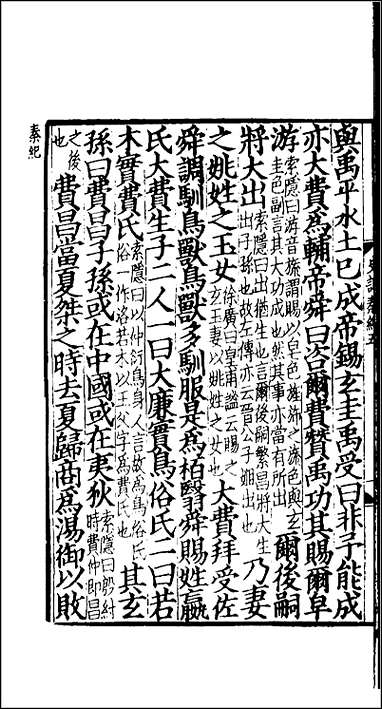 與禹平水土已成帝錫玄圭禹受曰非予能成
亦大費爲輔帝舜曰咨爾費贊禹功其賜爾皁
游索隱曰游音旒謂賜以皁色旌旆之旒色與玄圭色副言其大功成也然其事亦當有所出爾後嗣
將大出索隱曰出猶生也言爾後嗣繁昌將大生出子孫也故左傳亦云晉公子姬出也乃妻
之姚姓之玉女徐廣曰皇甫謐云賜之玄玉妻以姚姓之女也大費拜受佐
舜調馴鳥獸鳥獸多馴服是爲栢翳舜賜姓嬴
氏大費生子二人一曰大廉實鳥俗氏二曰若
木實費氏索隱曰以仲衍鳥身人言故爲鳥俗氏俗一作洛若木以王父字爲費氏也其玄
孫曰費昌子孫或在中國或在夷狄索隱曰殷紂時費仲即昌
之後也費昌當夏桀之時去夏歸商爲湯御以敗
秦紀